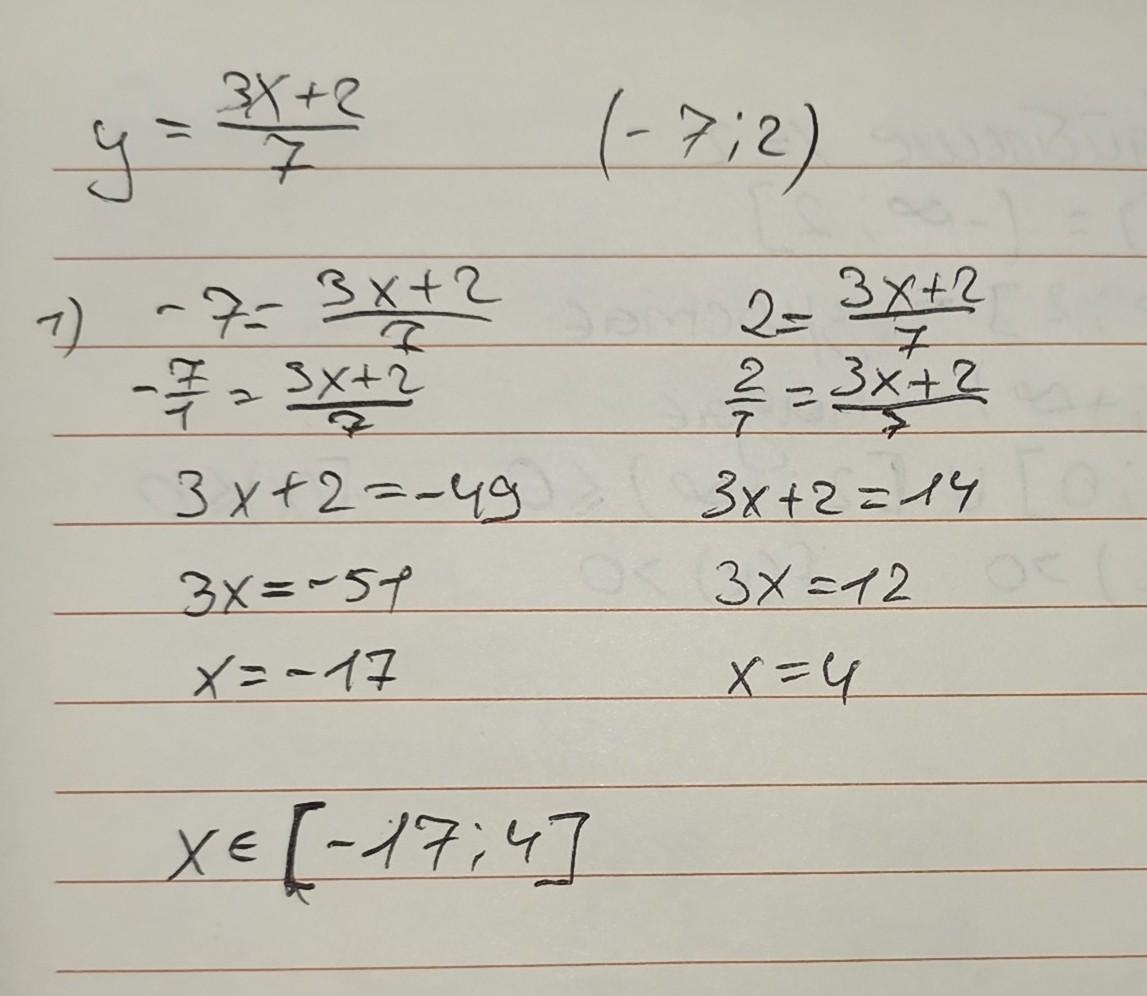 y = (3x+2)/7 (-7;2)
1) -7 = (3x+2)/7 2 = (3x+2)/7
-7/1 = (3x+2)/7 2/1 = (3x+2)/7
3x+2=-49 3x+2=14
3x=-51 3x=12
x=-17 x=4
x∈[-17;4]